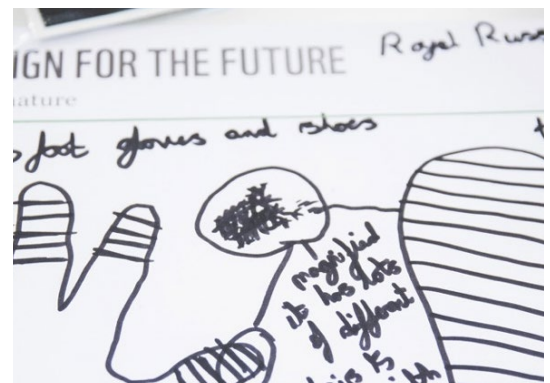 IGN FOR THE FUTURE
Royal Russ
nature
foot gloves and shoes
magnified
it has lots
of different